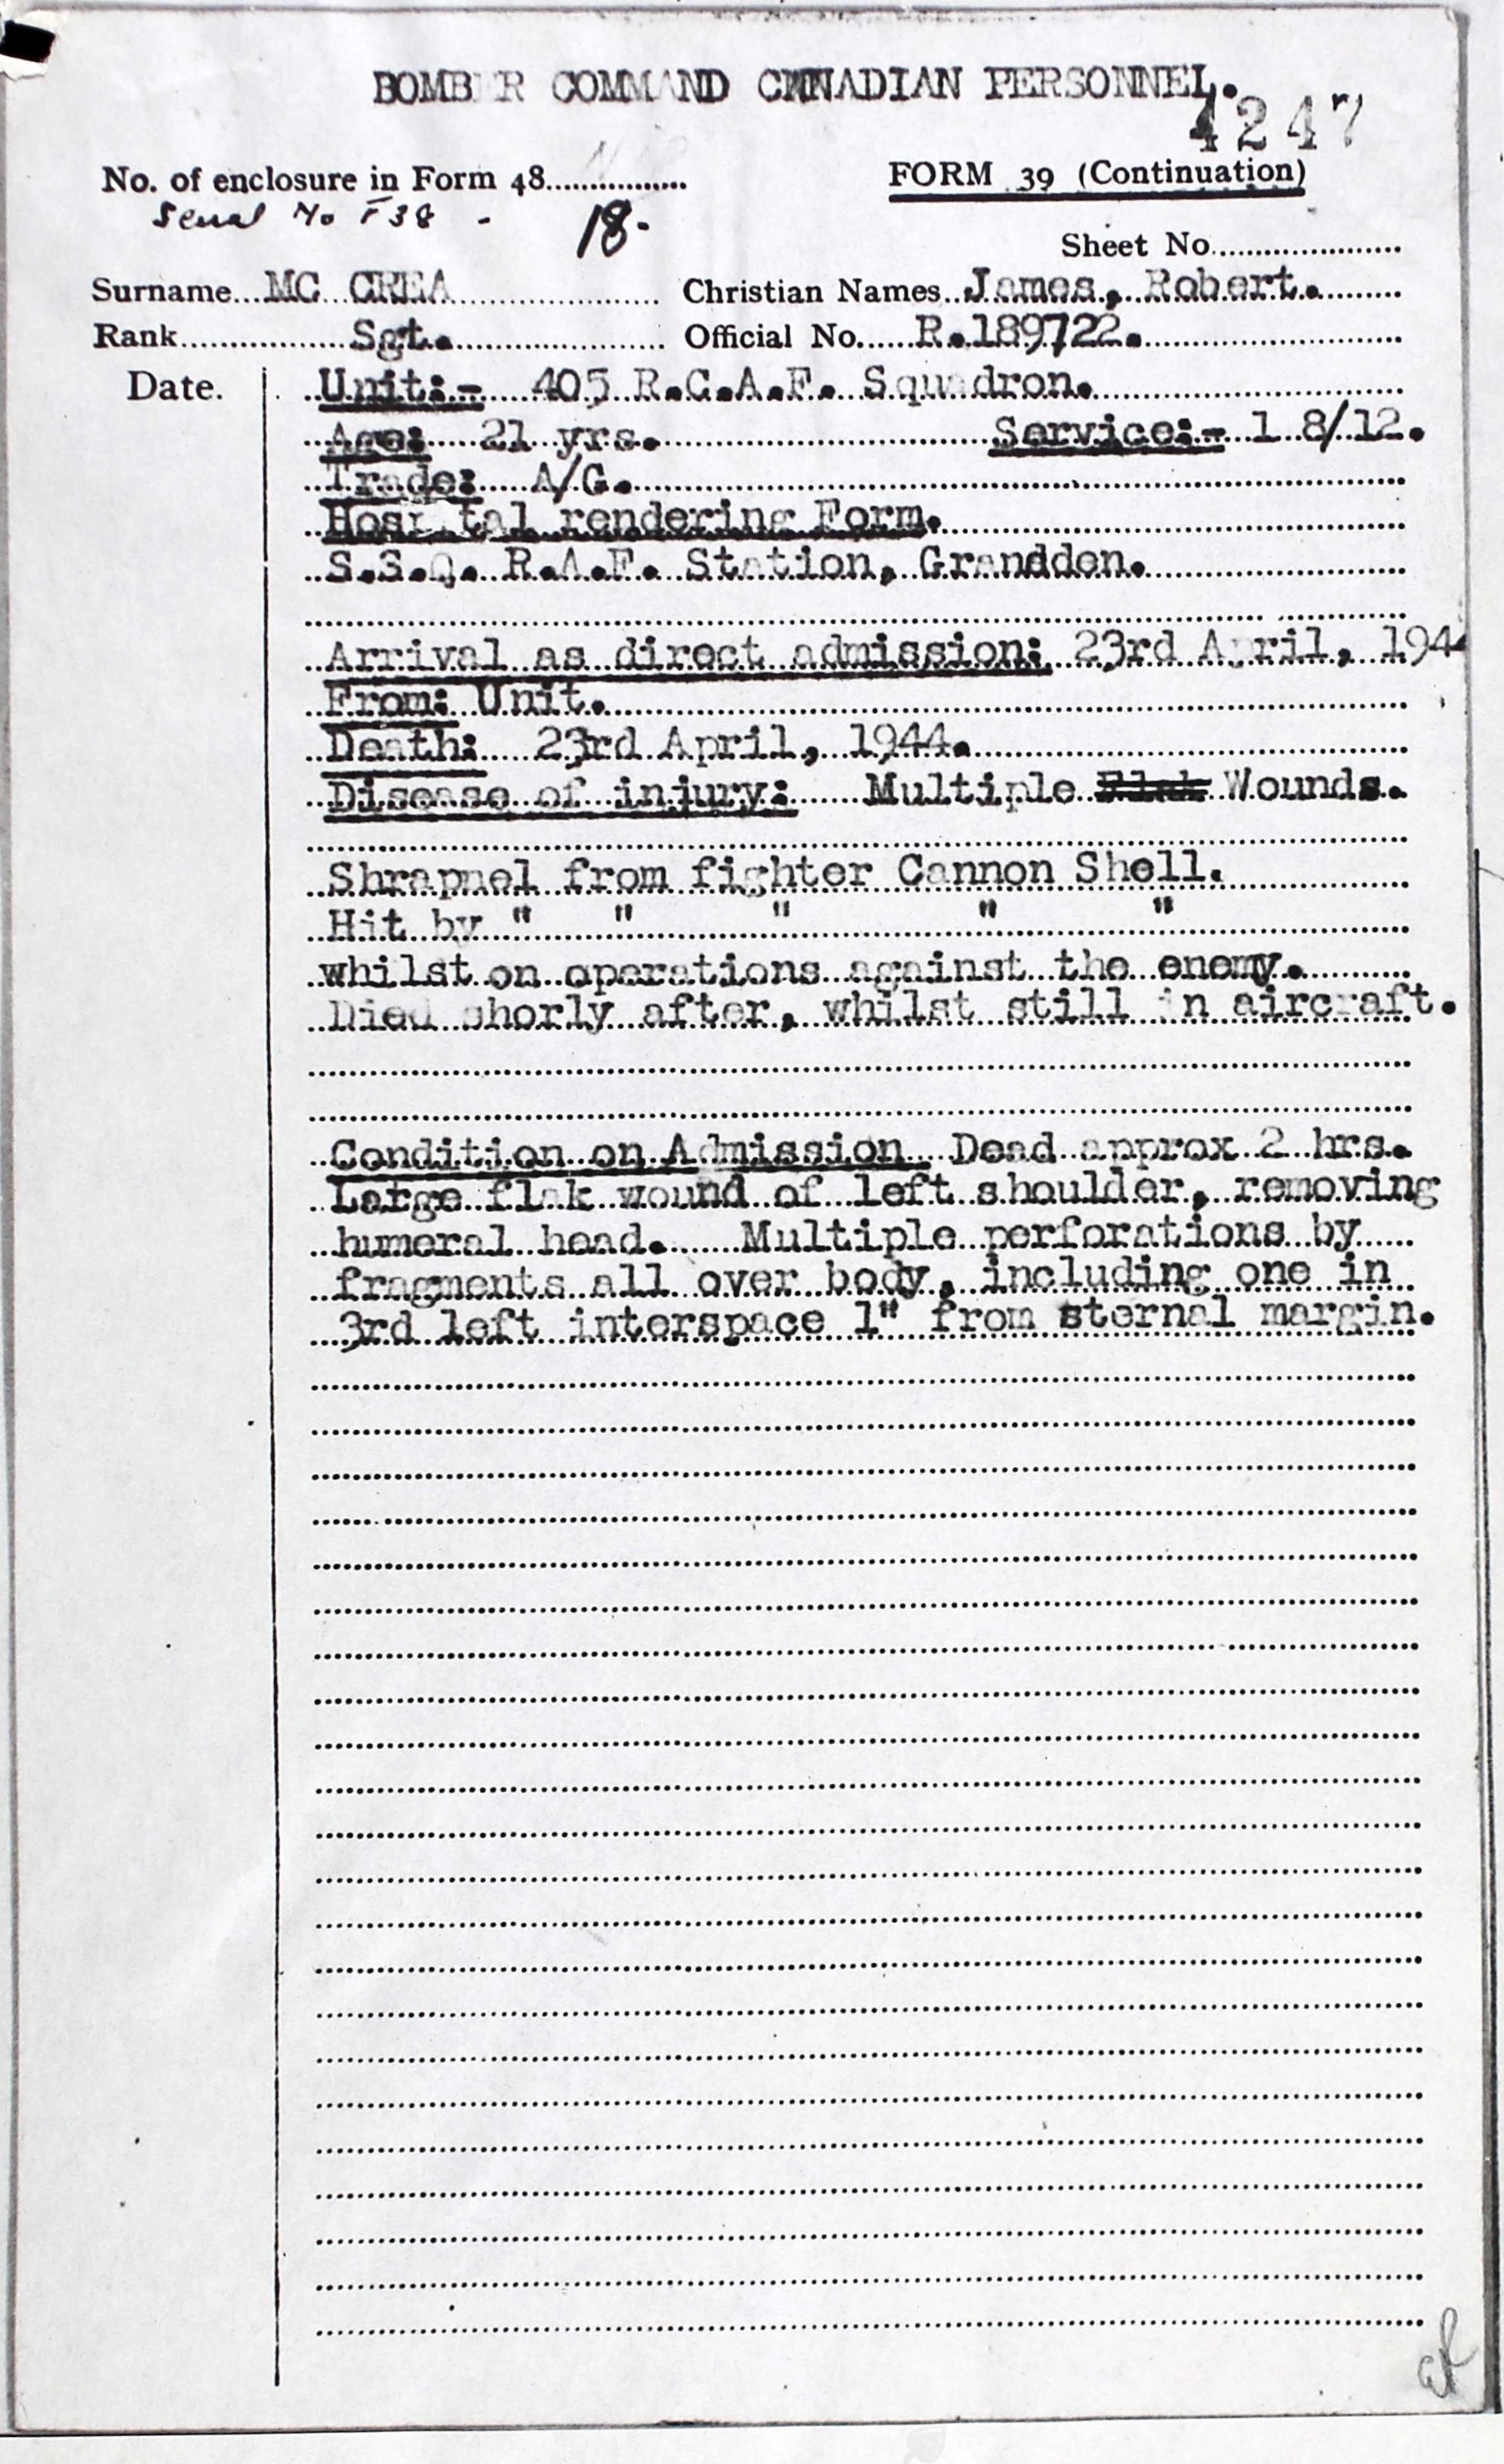 BOMBER COMMAND CANNADIAN PERSONNEL.
4247
No. of enclosure in Form 48
FORM 39 (Continuation)
Serial No F38 - 18-
Sheet No
Surname MC CREA Christian Names James, Robert.
Rank Sgt. Official No. R.189722.
Date.
Unit:- 405 R.C.A.F. Squadron.
Age: 21 yrs. Service:- 1 8/12.
Trade: A/G.
Hospital rendering Form.
S.S.Q. R.A.F. Station, Grandden.
Arrival as direct admission: 23rd April, 1944
From: Unit.
Death: 23rd April, 1944.
Disease of injury: Multiple Flak Wounds.
Shrapnel from fighter Cannon Shell.
Hit by " " " " "
whilst on operations against the enemy.
Died shorly after, whilst still in aircraft.
Condition on Admission Dead approx 2 hrs.
Latge flak wound of left shoulder, removing
humeral head. Multiple perforations by
fragments all over body, including one in
3rd left interspace 1" from sternal margin.